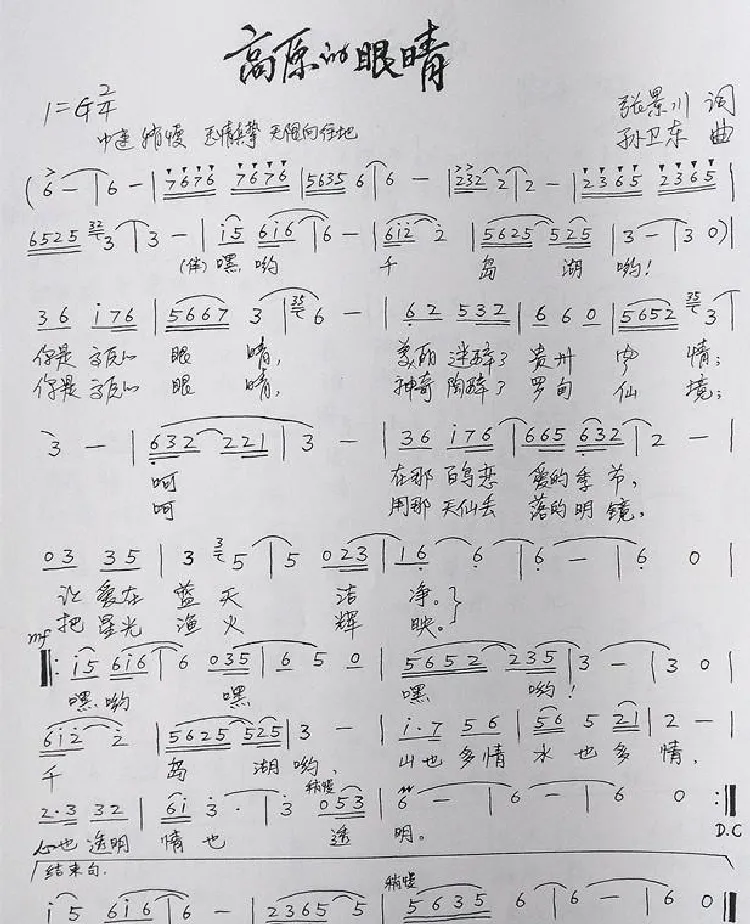 高原的眼睛
1=G 2/4
张景川 词
中速 稍慢 无限向往地
孙卫东 曲
(6 — | 6 — | 7676 7676 | 5635 6 | 6 — | 232 2 | 2 — | 2365 2365 |
6525 32 3 | 3 — | i5 6i6 | 6 — | 6i2 2 | 5625 525 | 3 — | 3 0) |
(伴)嘿 哟 千 岛 湖 哟!
36 i76 | 5667 3 | 35 6 — | 62 532 | 6 6 0 | 5652 35 3 |
你是高原的 眼 睛, 美丽 迷醉了 贵州 风 情;
你是高原的 眼 睛, 神奇 陶醉了 罗甸 仙 境;
3 — | 632 221 | 3 — | 36 i76 | 665 632 | 2 — |
呵 在那 百鸟恋 爱的 季 节,
呵 用那 天仙丢 落的 明 镜。
03 35 | 3 3 5 | 5 023 | 16 6 | 6 — | 6 0 |
让 爱在 蓝 天 洁 净。}
把 星光 渔 火 辉 映。
mp
‖: i5 6i6 | 6 035 | 6 5 0 | 5652 235 | 3 — | 3 0 |
嘿 哟 嘿 嘿 哟!
6i2 2 | 5625 525 | 3 — | i·7 56 | 56 5 21 | 2 — |
千 岛 湖 哟, 山也 多情 水 也 多 情,
稍慢
2·3 32 | 6i 3· | 3 053 | 6 — | 6 — | 6 0 :‖
心也 透明 情 也 透 明。 D.C
结束句.
稍慢
i5 6i6 | 6 — | 2365 5 | 5635 6 | 6 — | 6 0 ‖